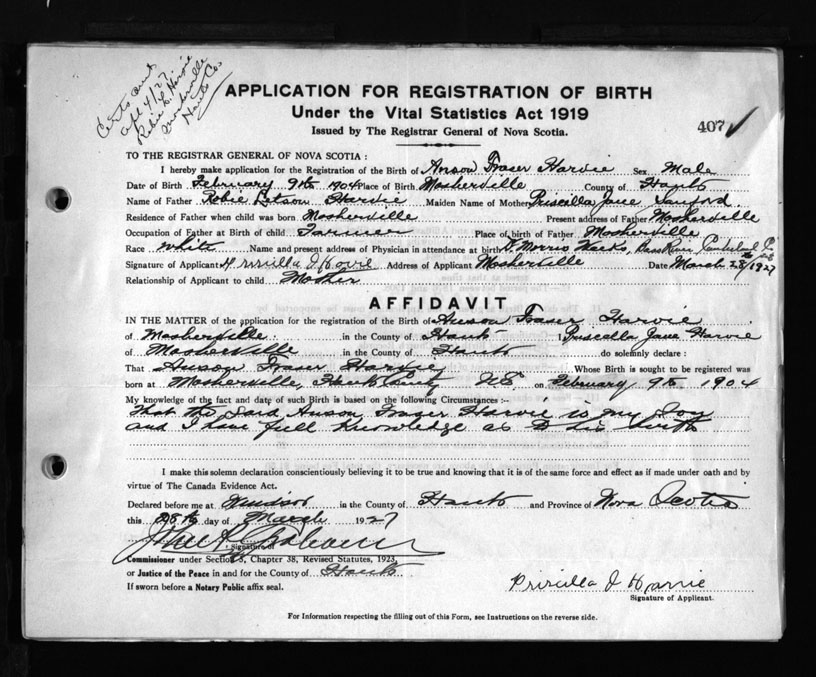 Certs sent
Apl 4/27
Robie L. Harvie
Mosherville
Hants Co.
APPLICATION FOR REGISTRATION OF BIRTH
Under the Vital Statistics Act 1919
Issued by The Registrar General of Nova Scotia.
407
TO THE REGISTRAR GENERAL OF NOVA SCOTIA :
I hereby make application for the Registration of the Birth of Anson Fraser Harvie Sex Male
Date of Birth February 9th 1904 Place of Birth Mosherville County of Hants
Name of Father Robie Letson Harvie Maiden Name of Mother Priscilla Jane Sanford
Residence of Father when child was born Mosherville Present address of Father Mosherville
Occupation of Father at Birth of child Farmer Place of birth of Father Mosherville
Race White Name and present address of Physician in attendance at birth Morris Bass River, Cumberland Co
Signature of Applicant Priscilla J Harvie Address of Applicant Mosherville Date March 28/1927
Relationship of Applicant to child Mother
AFFIDAVIT
IN THE MATTER of the application for the registration of the Birth of Anson Fraser Harvie
of Mosherville in the County of Hants I Priscalla Jane Harvie
of Mosherville in the County of Hants do solemnly declare :
That Anson Fraser Harvie Whose Birth is sought to be registered was
born at Mosherville, Hants County NS. on February 9th 1904
My knowledge of the fact and date of such Birth is based on the following Circumstances :-
That the said Anson Frazer Harvie is my Son
and I have full knowledge as to his birth
I make this solemn declaration conscientiously believing it to be true and knowing that it is of the same force and effect as if made under oath and by
virtue of The Canada Evidence Act.
Declared before me at Windsor in the County of Hants and Province of Nova Scotia
this 28th day of March 1927
Signature of
Commissioner under Section 3, Chapter 38, Revised Statutes, 1923,
or Justice of the Peace in and for the County of Hants
If sworn before a Notary Public affix seal.
Priscilla J Harvie
Signature of Applicant.
For Information respecting the filling out of this Form, see Instructions on the reverse side.